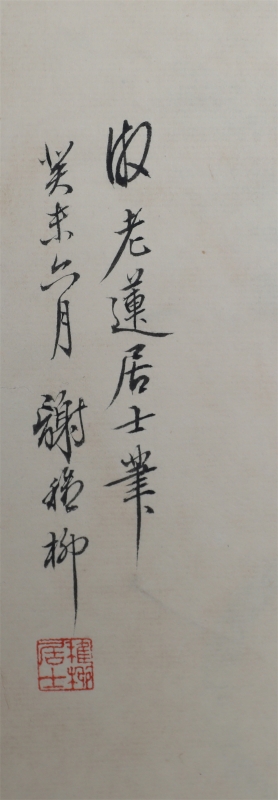 倣老蓮居士筆
癸未六月 謝稚柳
稚柳
居士